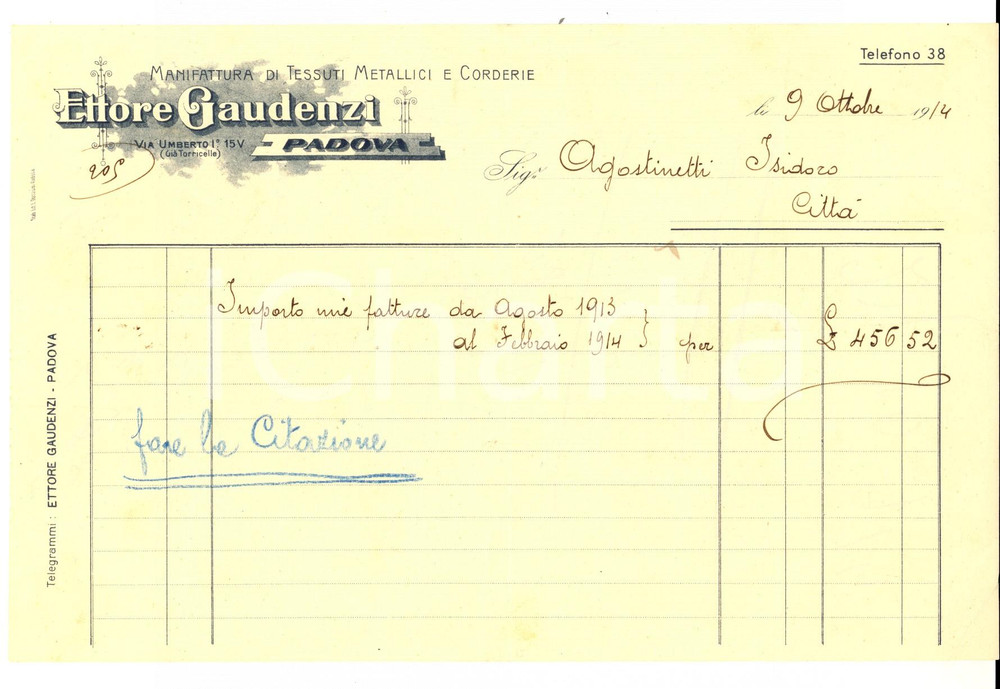 Telefono 38
MANIFATTURA DI TESSUTI METALLICI E CORDERIE
Ettore Gaudenzi
VIA UMBERTO I° 15V
(Già Torricelle)
PADOVA
205
li 9 Ottobre 1914
Sigr Agostinetti Isidoro
Città
Importo mie fatture da Agosto 1913
al Febbraio 1914 } per £ 456 52
fare la Citazione
Telegrammi: ETTORE GAUDENZI - PADOVA
Charta